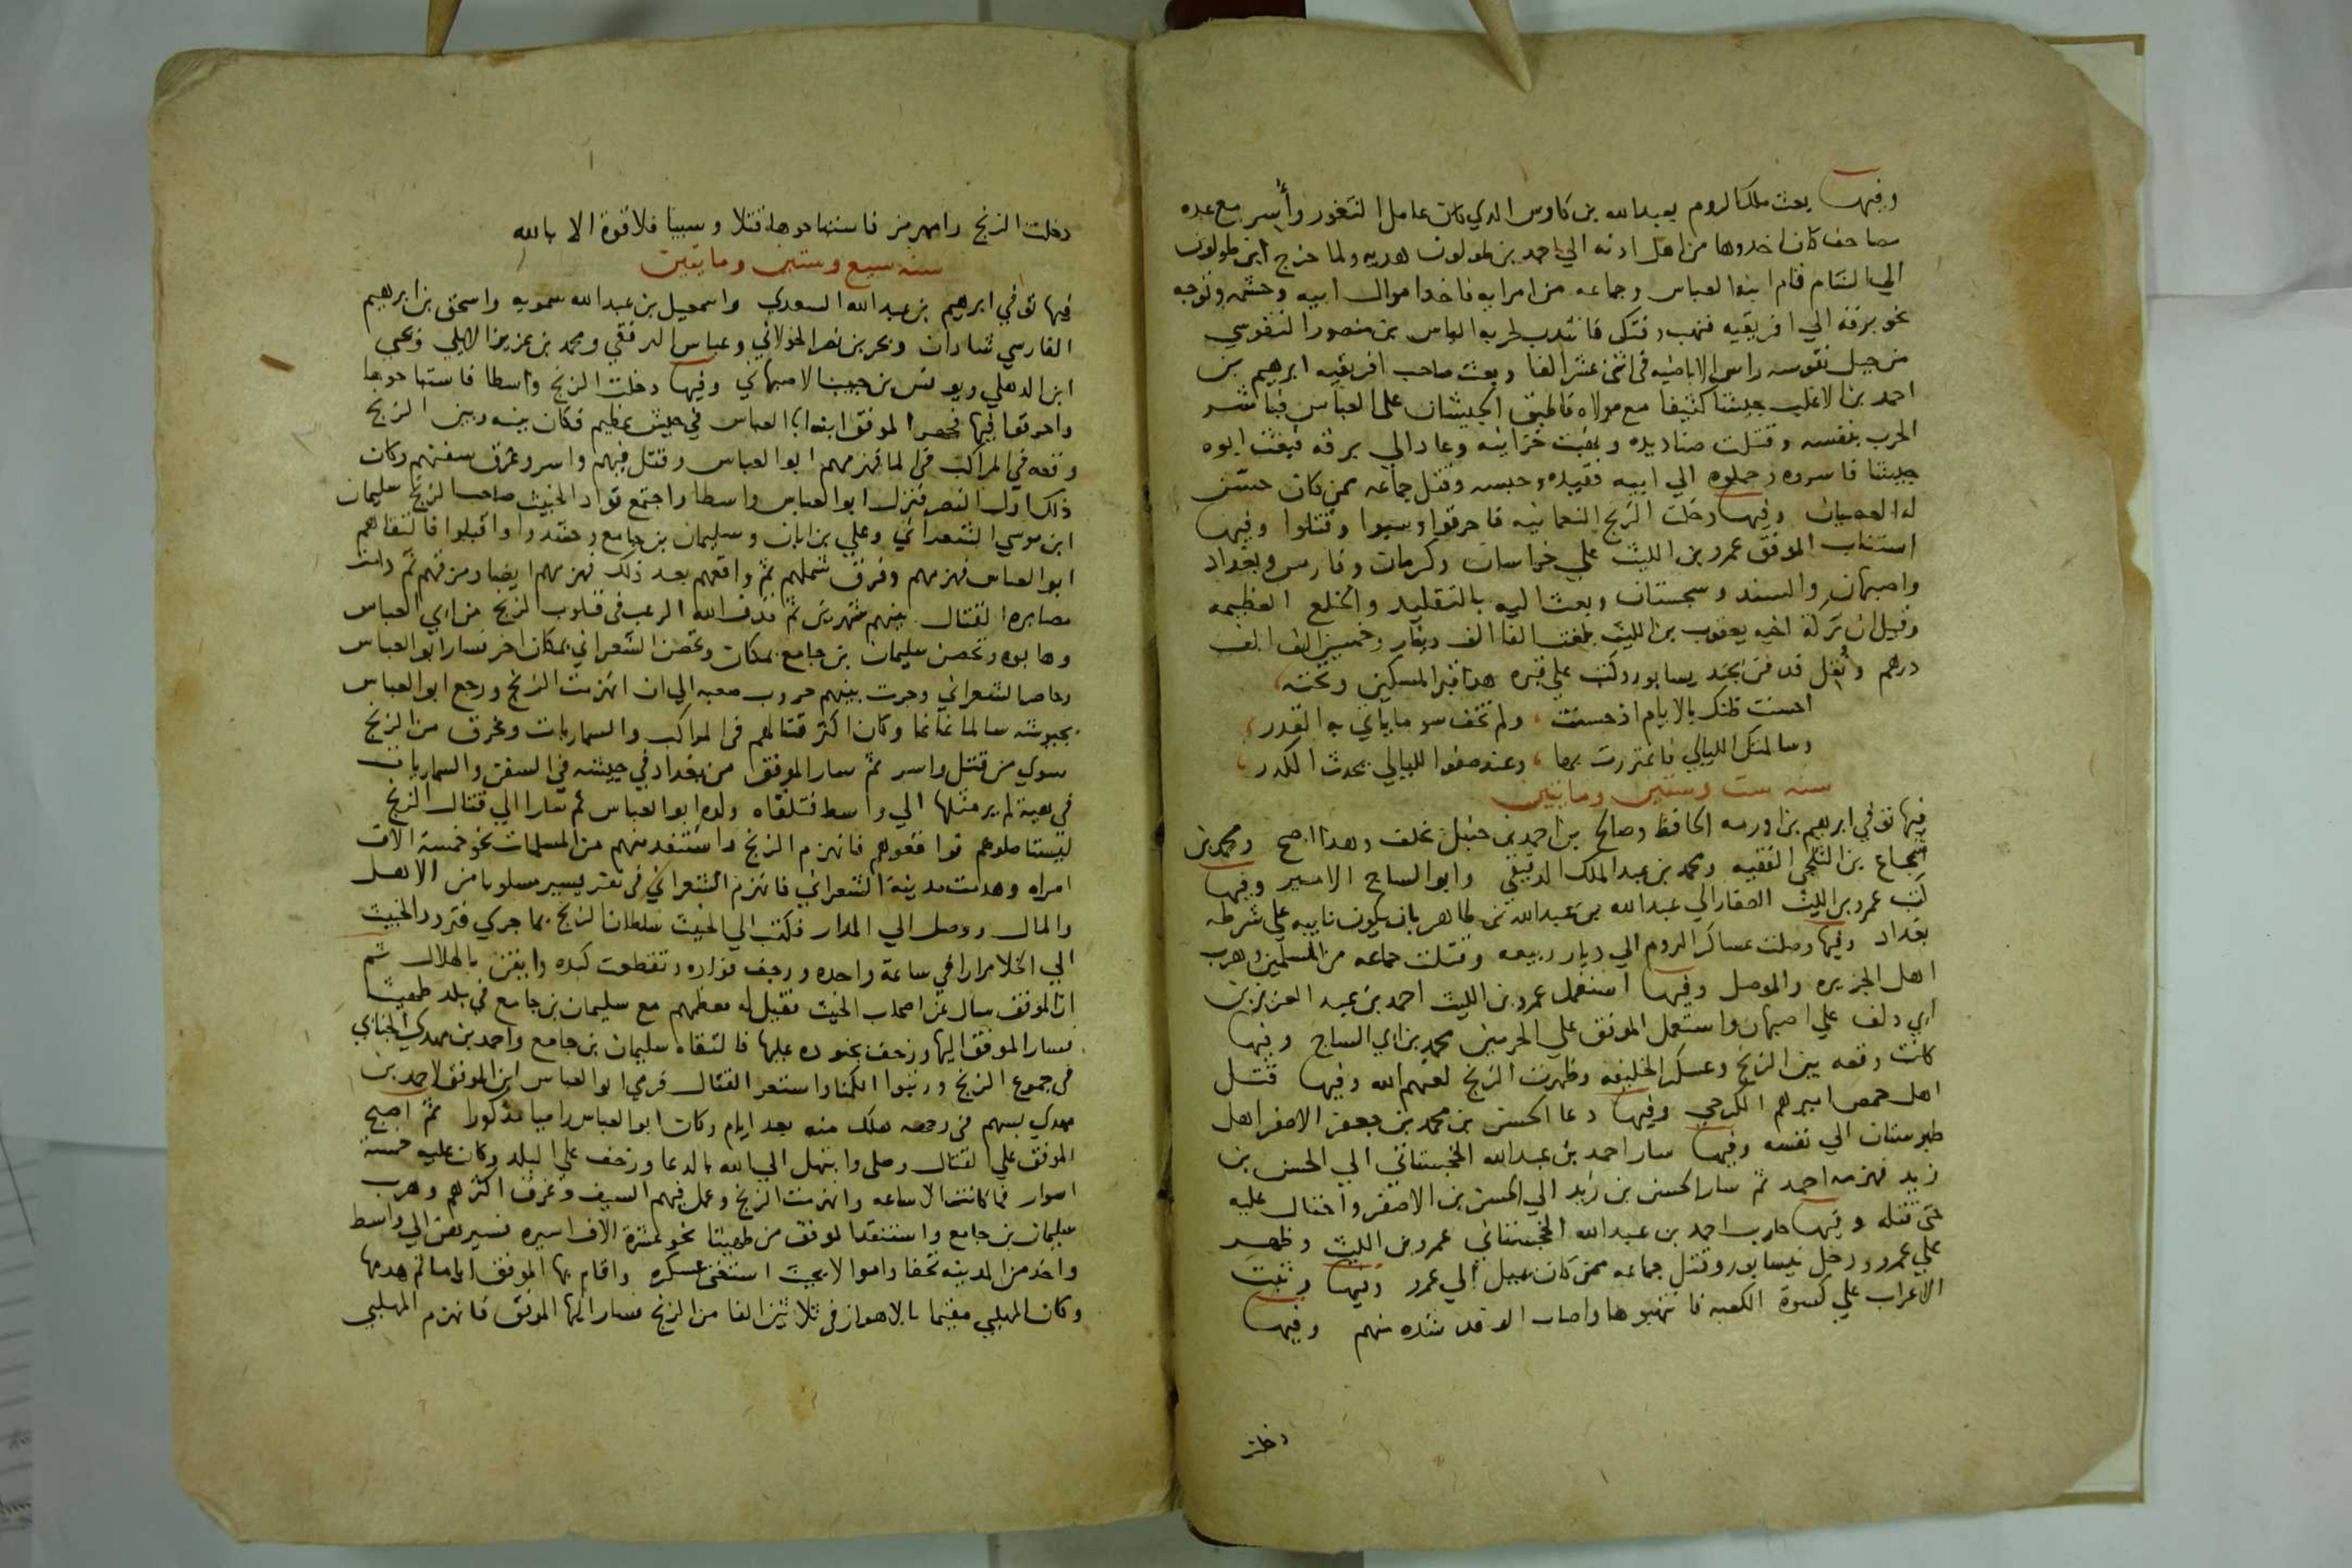 وفيها بعث ملك الروم بعبد الله بن كاوس الذي كان عامل الثغور وأُسِر مع عدة
مصاحف كان اخدوها من اهل ادنه الي احمد بن طولون هديه ولما خرج ابن طولون
الي الشام قام ابنه العباس وجماعه من امرايه فاخدوا موال ابيه وحشمه وتوجه
نحو برقه الي افريقيه فنهب وفتك فانتدب لحربه الياس بن منصور النفوسي
من جبل نفوسه راس الاباضيه في اثني عشر الفا وبعث صاحب افريقيه ابرهيم بن
احمد بن الاغلب جيشا كثيفا مع مولاه فاطبق الجيشان على العباس فباشر
الحرب بنفسه وقتلت صناديده ونهبت خزاينه وعاد الي برقه فبعث ابوه
جيشا فاسروه وحملوه الي ابيه فقيده وحبسه وقتل جماعه ممن كان حسّن
له العصيان وفيها دخلت الزنج النعمانيه فاحرقوا وسبوا وقتلوا وفيها
استناب الموفق عمرو بن الليث علي خراسان وكرمان وفارس وبغداد
واصبهان والسند وسجستان وبعث اليه بالتقليد والخلع العظيمه
وقيل ان تركة اخيه يعقوب بن الليث بلغت الفا الف دينار وخمسين الف الف
درهم ونُقل فدفن بجند يسابور وكتب علي قبره هدا قبر المسكين وتحته
احسنت ظنك بالايام اذ حسنت ، ولم تخف سو ما ياتي به القدر ،
وسالمتك الليالي فاغتررت بها ، وعند صفو الليالي يحدث الكدر ،
سنه ست وستين ومايتين
فيها توفي ابرهيم بن اورمه الحافظ وصالح بن احمد بن حنبل بخلف وهدا اصح ومحمد بن
شجاع بن الثلجي الفقيه ومحمد بن عبد الملك الدقيقي وابو الساج الامير وفيها
كتب عمرو بن الليث الصفار الي عبد الله بن عبد الله بن طاهر بان يكون نايبه علي شرطه
بغداد وفيها وصلت عساكر الروم الي ديار ربيعه وقتلت جماعه من المسلمين وهرب
اهل الجزيره والموصل وفيها استعمل عمرو بن الليث احمد بن عبد العزيز بن
ابي دلف علي اصبهان واستعمل الموفق علي الحرمين محمد بن ابي الساج وفيها
كانت وقعه بين الزنج وعسكر الخليفه وظهرت الزنج لعنهم الله وفيها قتل
اهل حمص اميرهم الكرخي وفيها دعا الحسن بن محمد بن جعفر الاصفر اهل
طبرستان الي نفسه وفيها سار احمد بن عبد الله الخجستاني الي الحسن بن
زيد فهزمه احمد ثم سار الحسن بن زيد الي الحسن بن الاصفر واحتال عليه
حتى قتله وفيها حارب احمد بن عبد الله الخجستاني عمرو بن الليث وظهر
علي عمرو ودخل نيسابور وقتل جماعه ممن كان يميل الي عمرو وفيها وثبت
الاعراب علي كسوة الكعبه فانتهبوها واصاب الوفد شده منهم وفيها
دخلت
دخلت الزنج رامهرمز فاستباحوها قتلا وسبيا فلا قوة الا بالله
سنه سبع وستين ومايتين
فيها توفي ابرهيم بن عبد الله السعدي واسمعيل بن عبد الله سمويه واسحق بن ابرهيم
الفارسي شادان وبحر بن نصر الخولاني وعباس الترقفي ومحمد بن عزيز الايلي ويحيي
ابن الدهلي ويونس بن حبيب الاصبهاني وفيها دخلت الزنج واسطا فاستباحوها
واحرقوا فيها فجهز الموفق ابنه ابا العباس في جيش عظيم فكان بينه وبين الزنج
وقعه في المراكب في الما فهزمهم ابو العباس وقتل فيهم واسر وغرق سفنهم وكان
ذلك اول النصر فنزل ابو العباس واسطا واجتمع قواد الخبيث صاحب الزنج سليمان
ابن موسي الشعراني وعلي بن ابان وسليمان بن جامع وحشدوا واقبلوا فالتقاهم
ابو العباس فهزمهم وفرق شملهم ثم واقعهم بعد ذلك فهزمهم ايضا ومزقهم ثم دامت
مصابره القتال بينهم شهرين ثم قدف الله الرعب في قلوب الزنج من ابي العباس
وهابوه وتحصن سليمان بن جامع بمكان وتحصن الشعراني بمكان اخر فسار ابو العباس
وحاصر الشعراني وجرت بينهم حروب صعبه الي ان انهزمت الزنج ورجع ابو العباس
بجيوشه سالما غانما وكان اكثر قتالهم في المراكب والسماريات وغرق من الزنج
سوي من قتل واسر ثم سار الموفق من بغداد في جيشه في السفن والسماريات
في هيبة لم ير مثلها الي واسط فتلقاه ولده ابو العباس ثم سارا الي قتال الزنج
ليستاصلوهم فواقعوهم فانهزم الزنج واستنقد منهم من المسلمات نحو خمسة الاف
امراه وهدمت مدينة الشعراني فانهزم الشعراني في نفر يسير مسلوبا من الاهل
والمال ووصل الي المدار فكتب الي الخبيث سلطان الزنج بما جري فتردد الخبيث
الي الخلا مرارا في ساعة واحده ورجف فواده وتقطعت كبده وايقن بالهلاك ثم
ان الموفق سال عن اصحاب الخبيث فقيل له معظمهم مع سليمان بن جامع في بلد طهيثا
فسار الموفق اليها وزحف بجنوده عليها فالتقاه سليمان بن جامع واحمد بن مهدي الجبائي
في جموع الزنج ورتبوا الكمنا واستعر القتال فرمي ابو العباس ابن الموفق لاحمد بن
مهدي بسهم في وجهه هلك منه بعد ايام وكان ابو العباس راميا مذكورا ثم اصبح
الموفق علي القتال وصلي وابتهل الي الله بالدعا وزحف علي البلد وكان عليه خمسة
اسوار فما كانت الا ساعه وانهزمت الزنج وعمل فيهم السيف وغرق اكثرهم وهرب
سليمان بن جامع واستنقد الموفق من طهيثا نحو عشرة الاف اسيره فسيرهن الي واسط
واخد من المدينه تحفا واموالا بحيث استغني عسكره واقام بها الموفق اياما ثم هدمها
وكان المهلبي مقيما بالاهواز في ثلاثين الفا من الزنج فسار اليها الموفق فانهزم المهلبي